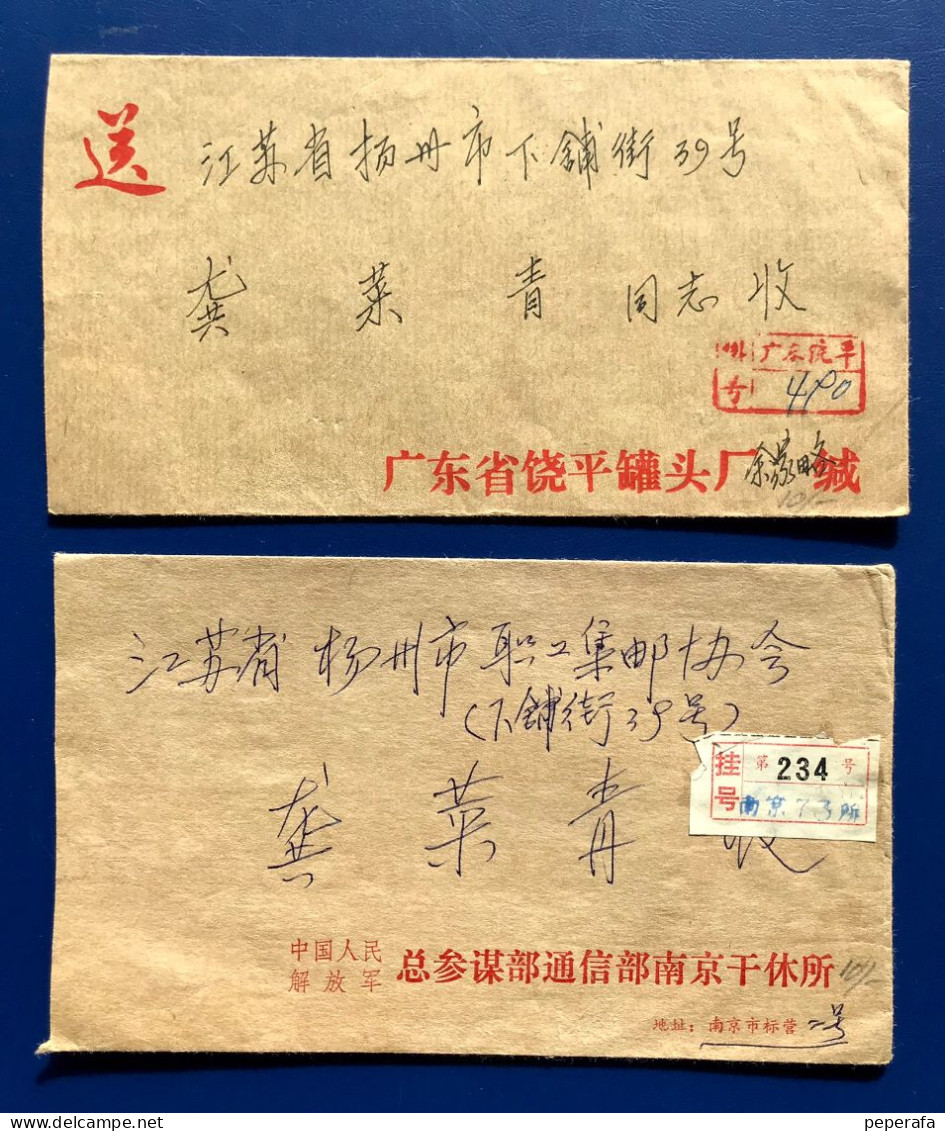 送
江苏省扬州市下铺街39号
龚菜青同志收
广东饶平
号 490
广东省饶平罐头厂 缄
10/-
江苏省扬州市职工集邮协会
(下铺街39号)
挂号 第 234 号
南京73所
龚菜青 收
中国人民解放军 总参谋部通信部南京干休所
10/-
地址：南京市标营二号
peperafa